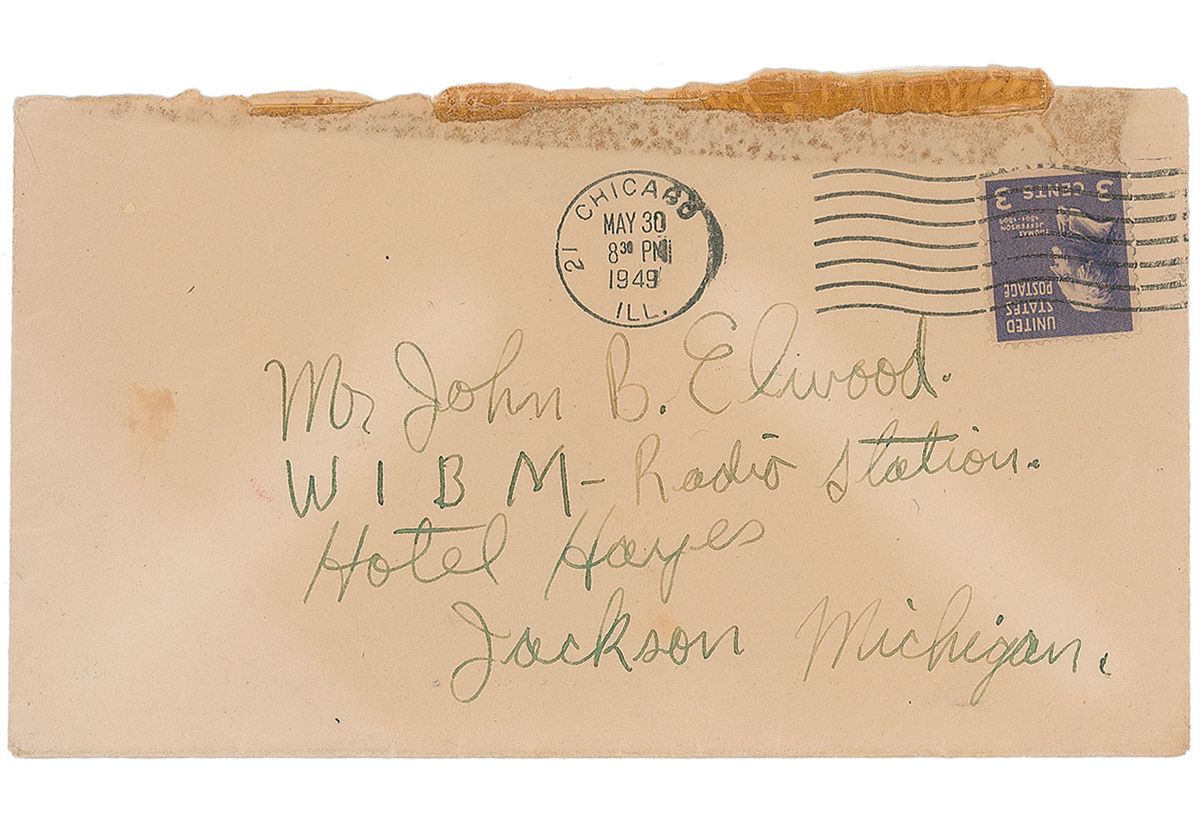 CHICAGO
MAY 30
8 30 PM
1949
21
ILL.
3 CENTS 3
THOMAS
JEFFERSON
1801-1809
UNITED
STATES
POSTAGE
Mr John B. Elwood.
W I B M - Radio Station.
Hotel Hayes
Jackson Michigan.